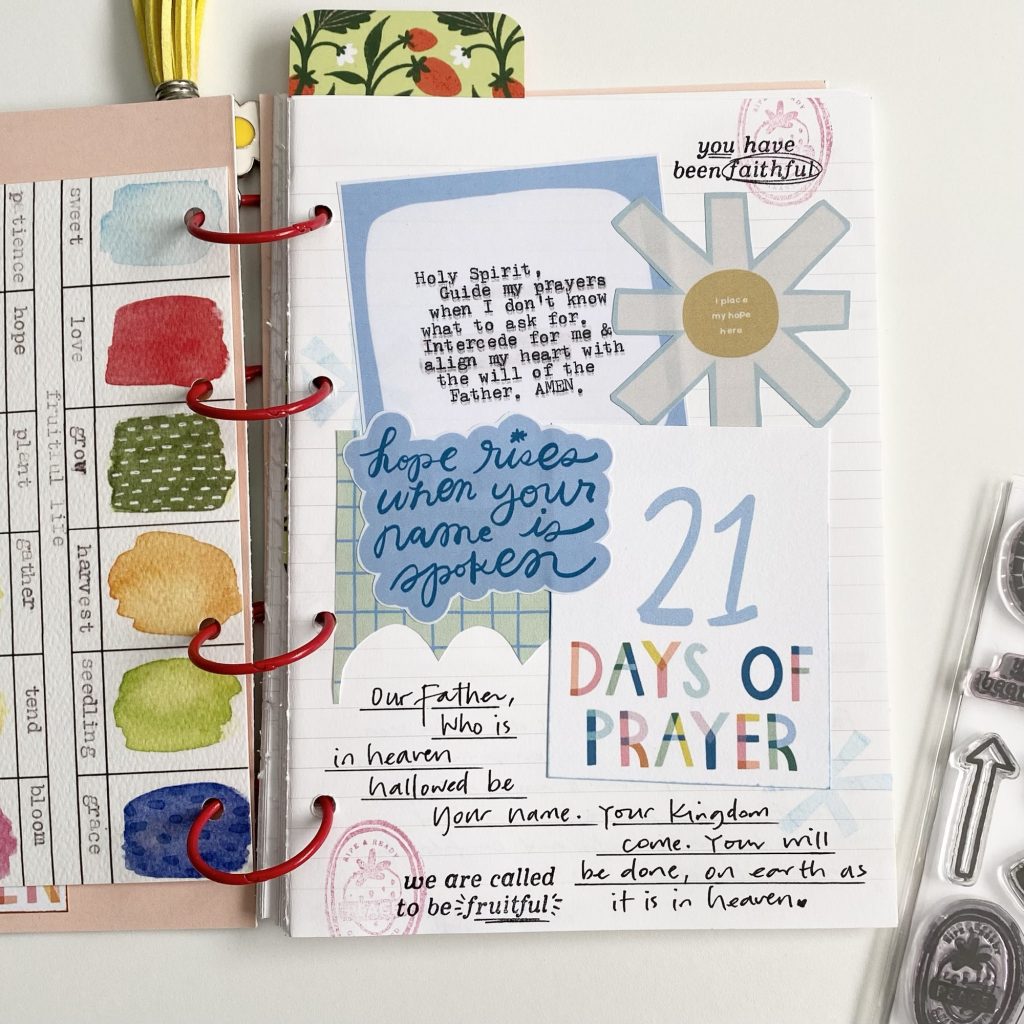 sweet
love
grow
harvest
seedling
grace
fruitful life
hope
plant
gather
tend
bloom
RIPE & READY
you have
been faithful
Holy Spirit,
Guide my prayers
when I don't know
what to ask for.
Intercede for me &
align my heart with
the will of the
Father. AMEN.
I place
my hope
here
hope rises
when your
name is
spoken
21
DAYS OF
PRAYER
Our Father,
Who is
in heaven
hallowed be
Your name. Your Kingdom
come. Your will
be done, on earth as
it is in heaven.
RIPE & READY
we are called
to be fruitful